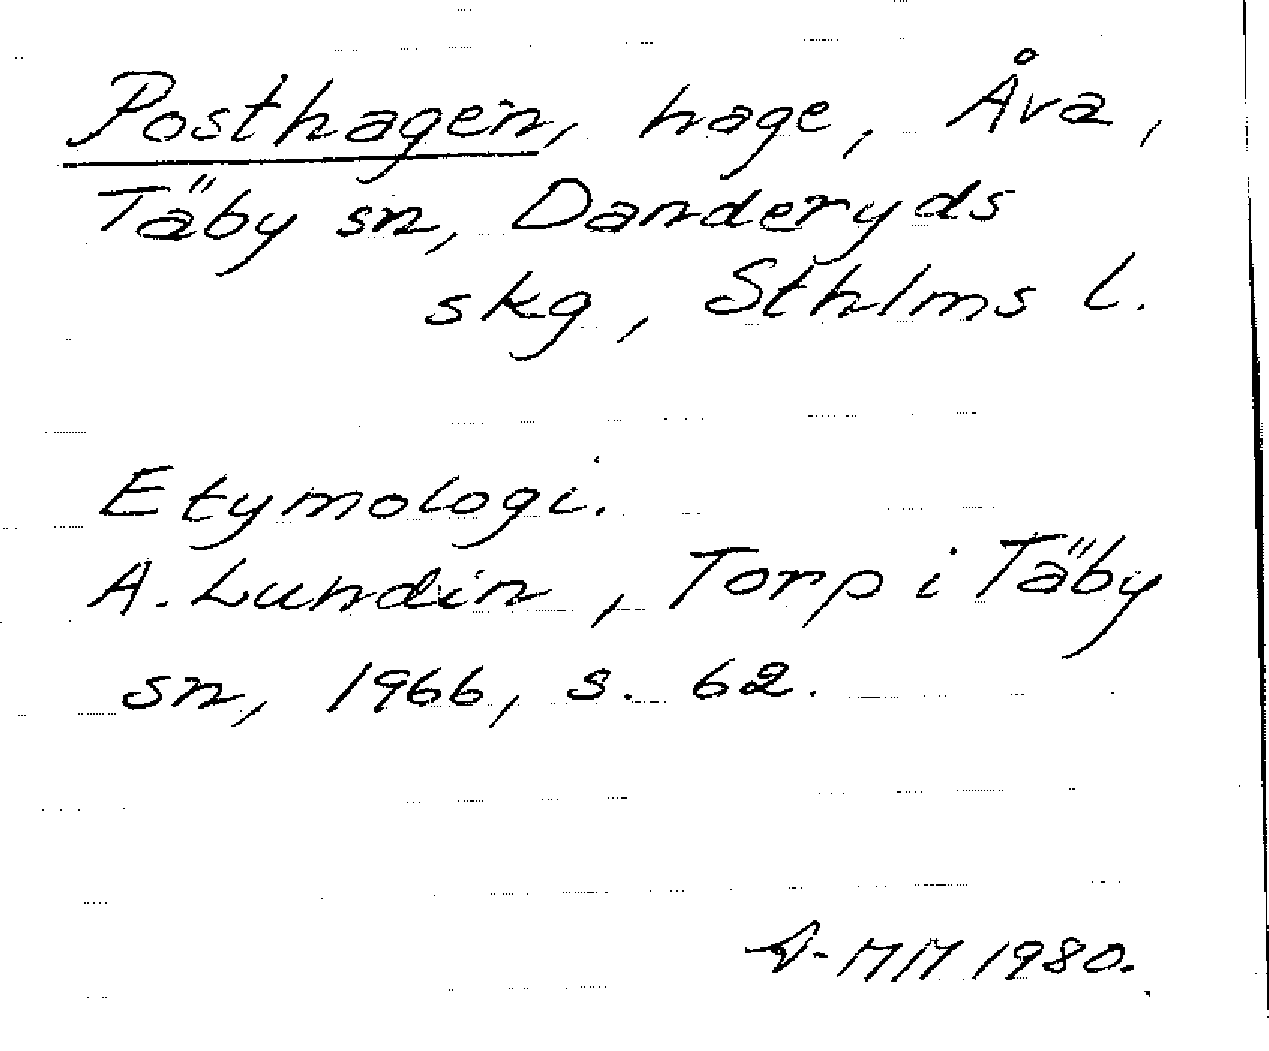 Posthagen, hage, Åva,
Täby sn, Danderyds
skg, Sthlms l.
Etymologi.
A. Lundin, Torp i Täby
sn, 1966, s. 62.
A-MM 1980.